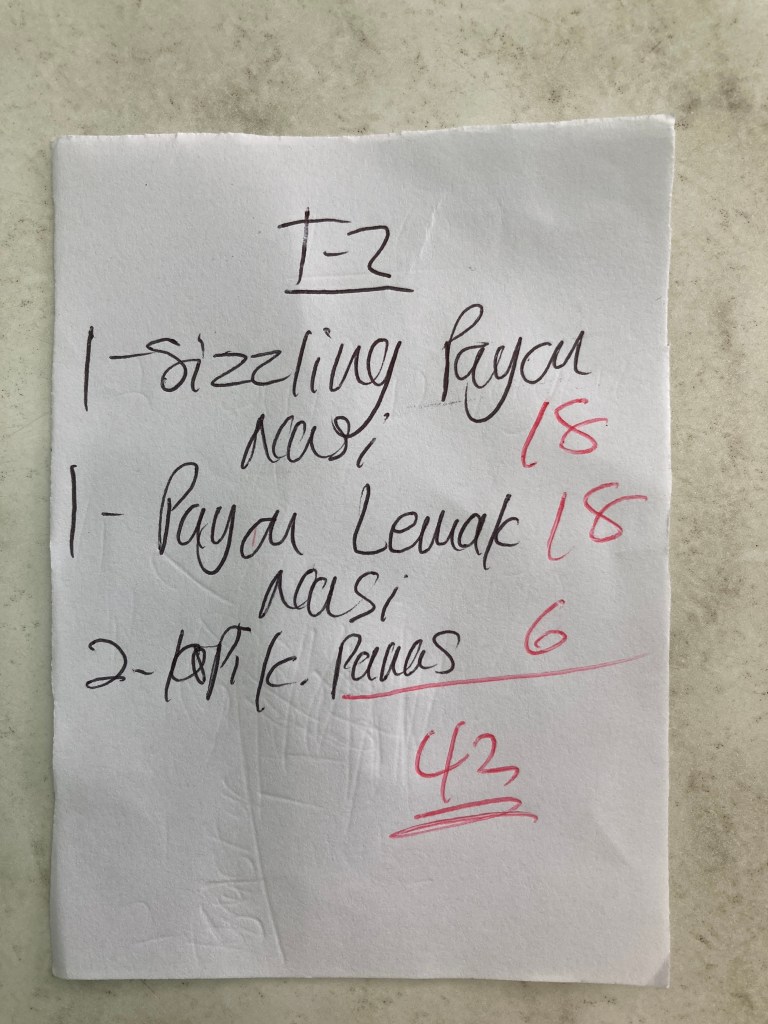 T-2
1-Sizzling Payau
Nasi 18
1- Payau Lemak 18
Nasi
2-kopi k. Panas 6
42